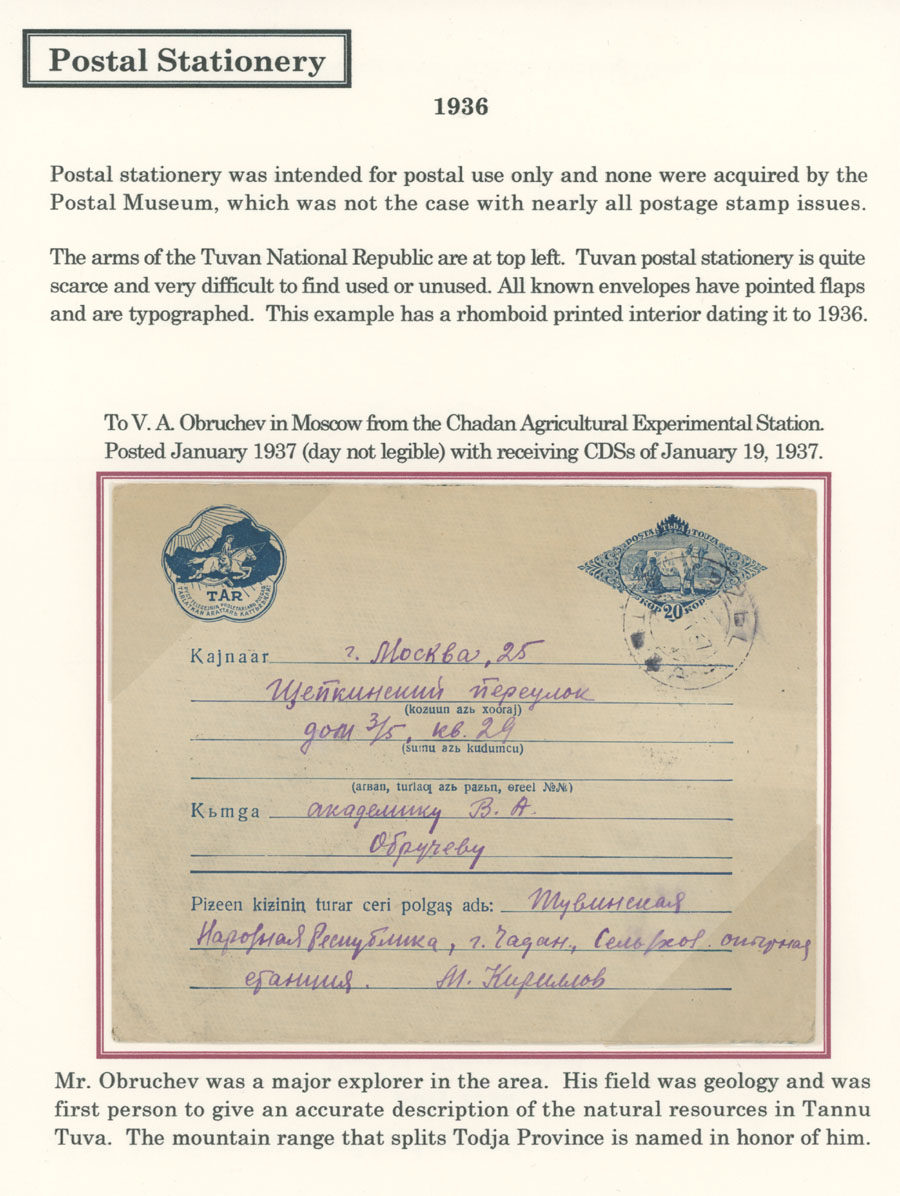 Postal Stationery
1936
Postal stationery was intended for postal use only and none were acquired by the
Postal Museum, which was not the case with nearly all postage stamp issues.
The arms of the Tuvan National Republic are at top left. Tuvan postal stationery is quite
scarce and very difficult to find used or unused. All known envelopes have pointed flaps
and are typographed. This example has a rhomboid printed interior dating it to 1936.
To V. A. Obruchev in Moscow from the Chadan Agricultural Experimental Station.
Posted January 1937 (day not legible) with receiving CDSs of January 19, 1937.
TAR
POSTA TЬBA TOꞐA
KOP 20 KOP
Kajnaar г. Москва, 25
Щепкинский переулок
(kozuun azь xooraj)
дом 3/5, кв. 29
(sumu azь kudumcu)
(arвan, turlaq azь pazьn, ɵreel №№)
Kьmga академику В. А.
Обручеву
Piƶeen kiƶinin̡ turar ceri polgaş adь: Тувинская
Народная Республика, г. Чадан, Сельхоз. опытная
станция. М. Кириллов
Mr. Obruchev was a major explorer in the area. His field was geology and was
first person to give an accurate description of the natural resources in Tannu
Tuva. The mountain range that splits Todja Province is named in honor of him.